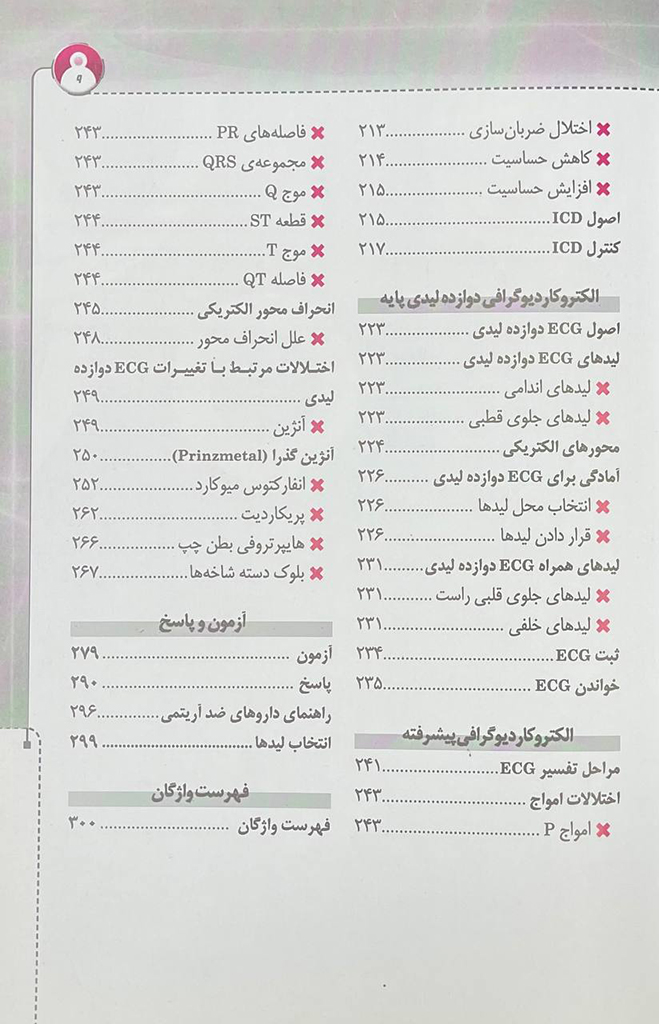 ۹
✖ اختلال ضربان‌سازی ..................۲۱۳
✖ کاهش حساسیت ..................۲۱۴
✖ افزایش حساسیت ..................۲۱۵
اصول ICD ..................۲۱۵
کنترل ICD ..................۲۱۷
الکتروکاردیوگرافی دوازده لیدی پایه
اصول ECG دوازده لیدی ..................۲۲۳
لیدهای ECG دوازده لیدی ..................۲۲۳
✖ لیدهای اندامی ..................۲۲۳
✖ لیدهای جلوی قطبی ..................۲۲۳
محورهای الکتریکی ..................۲۲۴
آمادگی برای ECG دوازده لیدی ..........۲۲۶
✖ انتخاب محل لیدها ..................۲۲۶
✖ قرار دادن لیدها ..................۲۲۶
لیدهای همراه ECG دوازده لیدی .........۲۳۱
✖ لیدهای جلوی قلبی راست ...........۲۳۱
✖ لیدهای خلفی ..................۲۳۱
ثبت ECG ..................۲۳۴
خواندن ECG ..................۲۳۵
الکتروکاردیوگرافی پیشرفته
مراحل تفسیر ECG ..................۲۴۱
اختلالات امواج ..................۲۴۳
✖ امواج P ..................۲۴۳
✖ فاصله‌های PR ..................۲۴۳
✖ مجموعه‌ی QRS ..................۲۴۳
✖ موج Q ..................۲۴۳
✖ قطعه ST ..................۲۴۴
✖ موج T ..................۲۴۴
✖ فاصله QT ..................۲۴۴
انحراف محور الکتریکی ..................۲۴۵
✖ علل انحراف محور ..................۲۴۸
اختلالات مرتبط با تغییرات ECG دوازده
لیدی ..................۲۴۹
✖ آنژین ..................۲۴۹
آنژین گذرا (Prinzmetal) ..............۲۵۰
✖ انفارکتوس میوکارد ..................۲۵۲
✖ پریکاردیت ..................۲۶۲
✖ هایپرتروفی بطن چپ ..................۲۶۶
✖ بلوک دسته شاخه‌ها ..................۲۶۷
آزمون و پاسخ
آزمون ..................۲۷۹
پاسخ ..................۲۹۰
راهنمای داروهای ضد آریتمی .............۲۹۶
انتخاب لیدها ..................۲۹۹
فهرست واژگان
فهرست واژگان ..................۳۰۰